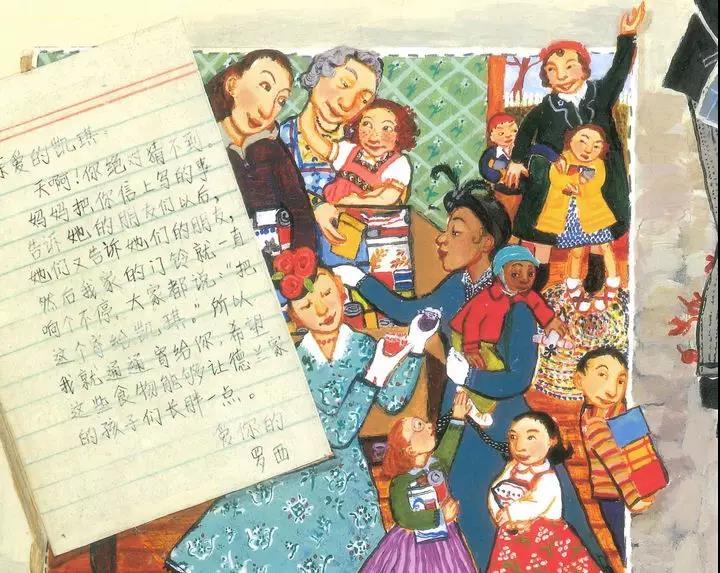 亲爱的凯琪:
天啊!你绝对猜不到。
妈妈把你信上写的事
告诉她的朋友们以后,
她们又告诉她们的朋友,
然后我家的门铃就一直
响个不停,大家都说:“把
这个寄给凯琪。”所以
我就通通寄给你,希望
这些食物能够让德兰家
的孩子们长胖一点。
爱你的
罗西